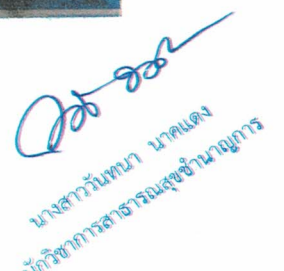 นางสาววันทนา นาคแดง
นักวิชาการสาธารณสุขชำนาญการ